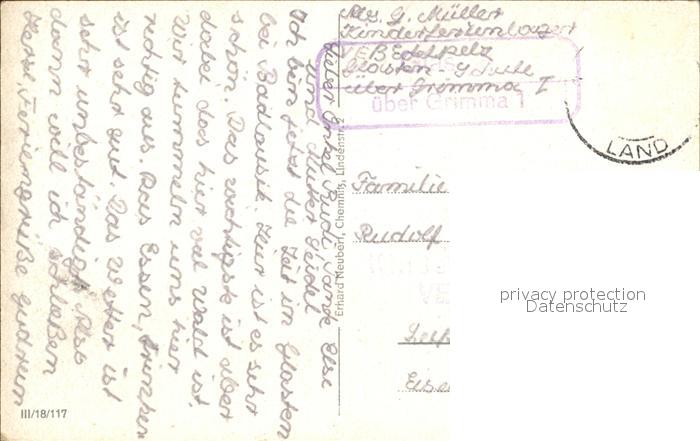 Abs. G. Müller
Kinderferienlager
VEB Edelpelz
Glasten-
über Grimma I
über Grimma 1
LAND
Lieber Onkel Rudi, Tante Else
und Mutter Seidel
Ich bin jetzt die Zeit in Glasten
bei Badlausik. Hier ist es sehr
schön. Das wichtigste ist aber
dabei das hier viel Wald ist.
Wir tummeln uns hier
richtig aus. Das Essen, trinken
ist sehr gut. Das Wetter ist
sehr unbeständig. Also
dann will ich schließen
Feriengrüße Gudrun
Erhard Neubert, Chemnitz, Lindenstr.
Familie
Rudolf
III/18/117
privacy protection
Datenschutz